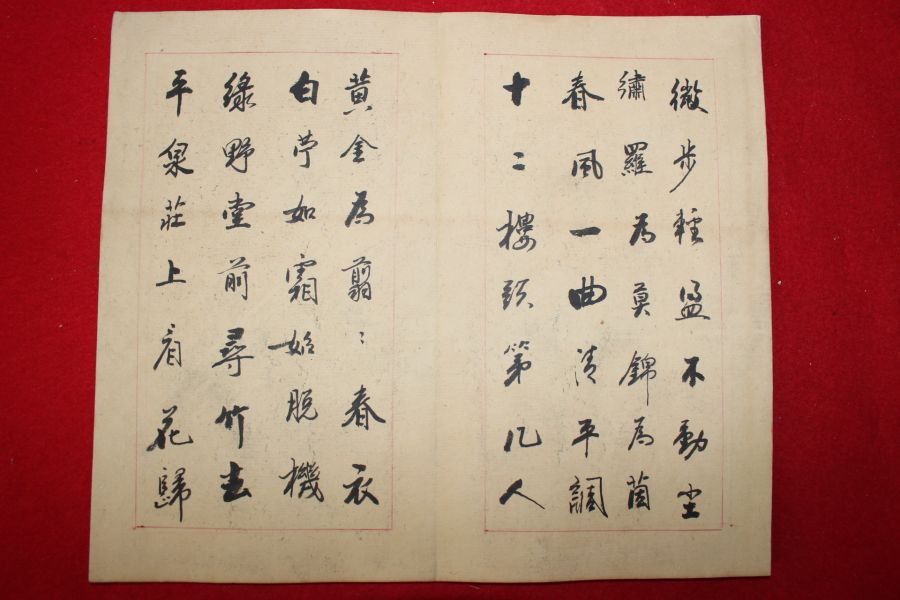 微步輕盈不動尘
繡羅為奠錦為茵
春風一曲清平調
十二樓頭第几人
黄金為翦〻春衣
白苧如霜始脱機
緑野堂前尋竹去
平泉莊上看花歸